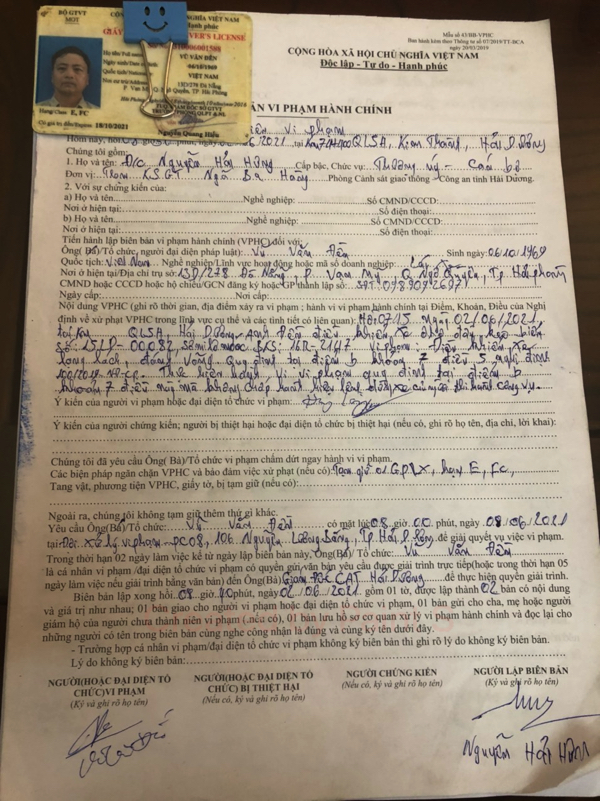 BỘ GTVT
MOT
CỘNG HÒA XÃ HỘI CHỦ NGHĨA VIỆT NAM
Hạnh phúc
GIẤY
DRIVER'S LICENSE
VŨ VĂN ĐỀN
06/10/1969
VIỆT NAM
13D/278 Đà Nẵng
Hạng/Class E, FC
Có giá trị đến/Expires 18/10/2021
Nguyễn Quang Hiệu
Mẫu số 43/BB-VPHC
Ban hành kèm theo Thông tư số 07/2019/TT-BCA
ngày 20/03/2019
CỘNG HÒA XÃ HỘI CHỦ NGHĨA VIỆT NAM
Độc lập - Tự do - Hạnh phúc
ẢN VI PHẠM HÀNH CHÍNH
vi phạm
Hôm nay, phút, 2021, tại QL5A, Kim Thành, Hải Dương
Chúng tôi gồm:
1. Họ và tên: Đ/c Nguyễn Hải Hùng Cấp bậc, Chức vụ: Thượng úy - Cán bộ
Đơn vị: Trạm KSGT Ngã Ba Hàng Phòng Cảnh sát giao thông - Công an tỉnh Hải Dương.
2. Với sự chứng kiến của:
a) Họ và tên: Nghề nghiệp: Số CMND/CCCD:
Nơi ở hiện tại: Số điện thoại:
b) Họ và tên: Nghề nghiệp: Số CMND/CCCD:
Nơi ở hiện tại: Số điện thoại:
Tiến hành lập biên bản vi phạm hành chính (VPHC) đối với:
Ông( Bà)/Tổ chức, người đại diện pháp luật): Vũ Văn Đền Sinh ngày: 06.10.1969
Quốc tịch: Việt Nam Nghề nghiệp/Lĩnh vực hoạt động hoặc mã số doanh nghiệp: Lái xe
Nơi ở hiện tại/Địa chỉ trụ sở: 13D/278 Đà Nẵng, P. Vạn Mỹ, Q. Ngô Quyền, Tp. Hải Phòng
CMND hoặc CCCD hoặc hộ chiếu/GCN đăng ký hoặc GP thành lập số: SĐT:
Ngày cấp: Nơi cấp:
Nội dung VPHC (ghi rõ thời gian, địa điểm xảy ra vi phạm ; hành vi vi phạm hành chính tại Điểm, Khoản, Điều của Nghị
định về xử phạt VPHC trong lĩnh vực cụ thể và các tình tiết có liên quan): Hồi 07.15 ngày 02/06/2021
tại Km QL5A, Hải Dương. Anh Đền điều khiển xe đầu kéo biển
số: 15LD-00082 Sơmirơmooc BKS: 16R-2147 Vi phạm: Điều khiển xe
lạng lách, đánh võng. Quy định tại điểm b khoản 7 điều 5 nghị định
100/2019-NĐ-CP. Thực hiện hành vi vi phạm quy định tại điểm b
khoản 7 điều này mà không chấp hành hiệu lệnh dừng xe của người thi hành công vụ.
Ý kiến của người vi phạm hoặc đại diện tổ chức vi phạm:
Ý kiến của người chứng kiến; người bị thiệt hại hoặc đại diện tổ chức bị thiệt hại (nếu có, ghi rõ họ tên, địa chỉ, lời khai):
Chúng tôi đã yêu cầu Ông( Bà)/Tổ chức vi phạm chấm dứt ngay hành vi vi phạm.
Các biện pháp ngăn chặn VPHC và bảo đảm việc xử phạt (nếu có): Tạm giữ 01 GPLX, hạng E, FC.
Tang vật, phương tiện VPHC, giấy tờ, bị tạm giữ (nếu có):
Ngoài ra, chúng tôi không tạm giữ thêm thứ gì khác.
Yêu cầu Ông(Bà)/Tổ chức: Vũ Văn Đền có mặt lúc 08 giờ 00 phút, ngày 08/06/2021
tại Đội xử lý vi phạm - PC08, 106 Nguyễn Lương Bằng, Tp. Hải Dương để giải quyết vụ việc vi phạm.
Trong thời hạn 02 ngày làm việc kể từ ngày lập biên bản này, Ông(Bà)/ Tổ chức: Vũ Văn Đền
là cá nhân vi phạm/đại diện tổ chức vi phạm có quyền gửi văn bản yêu cầu được giải trình trực tiếp(hoặc trong thời hạn 05
ngày làm việc nếu giải trình bằng văn bản) đến Ông(Bà) Giám đốc CAT Hải Dương để thực hiện quyền giải trình.
Biên bản lập xong hồi 08 giờ 10 phút, ngày 02/06/2021 gồm 01 tờ, được lập thành 02 bản có nội dung
và giá trị như nhau; 01 bản giao cho người vi phạm hoặc đại diện tổ chức vi phạm, 01 bản gửi cho cha, mẹ hoặc người
giám hộ của người chưa thành niên vi phạm (nếu có), 01 bản lưu hồ sơ cơ quan xử lý vi phạm hành chính và đọc lại cho
những người có tên trong biên bản cùng nghe công nhận là đúng và cùng ký tên dưới đây.
- Trường hợp cá nhân vi phạm/đại diện tổ chức vi phạm không ký biên bản thì ghi rõ lý do không ký biên bản.
Lý do không ký biên bản:
NGƯỜI(HOẶC ĐẠI DIỆN TỔ CHỨC) VI PHẠM
(Ký và ghi rõ họ tên)
NGƯỜI(HOẶC ĐẠI DIỆN TỔ CHỨC) BỊ THIỆT HẠI
(Nếu có, ký và ghi rõ họ tên)
NGƯỜI CHỨNG KIẾN
(Nếu có, ký và ghi rõ họ tên)
NGƯỜI LẬP BIÊN BẢN
(Ký và ghi rõ họ tên)
Nguyễn Hải Hùng